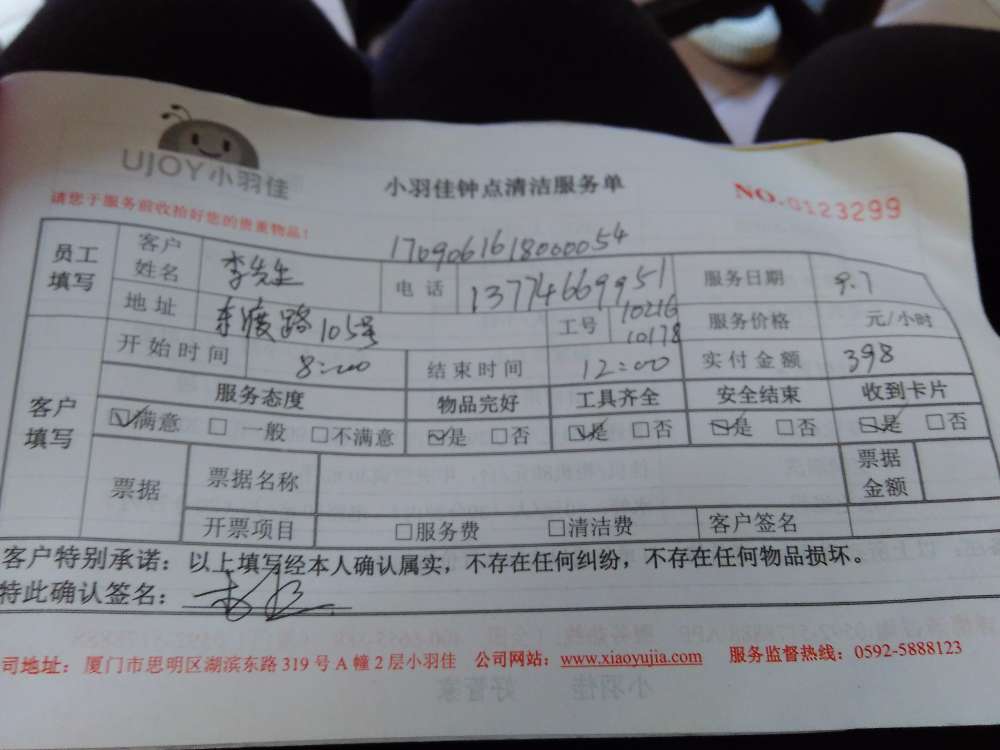 UJOY小羽佳
小羽佳钟点清洁服务单
NO.0123299
请您于服务前收拾好您的贵重物品!
1709061618000054
员工填写 客户姓名 李先生 电话 13774669951 服务日期 9.7
地址 东渡路105号 工号 10216 10178 服务价格 元/小时
客户填写 开始时间 8:00 结束时间 12:00 实付金额 398
服务态度 物品完好 工具齐全 安全结束 收到卡片
☑满意 □一般 □不满意 ☑是 □否 ☑是 □否 ☑是 □否 ☑是 □否
票据 票据名称 票据金额
开票项目 □服务费 □清洁费 客户签名
客户特别承诺:以上填写经本人确认属实,不存在任何纠纷,不存在任何物品损坏。
特此确认签名:
司地址:厦门市思明区湖滨东路319号A幢2层小羽佳 公司网站:www.xiaoyujia.com 服务监督热线:0592-5888123